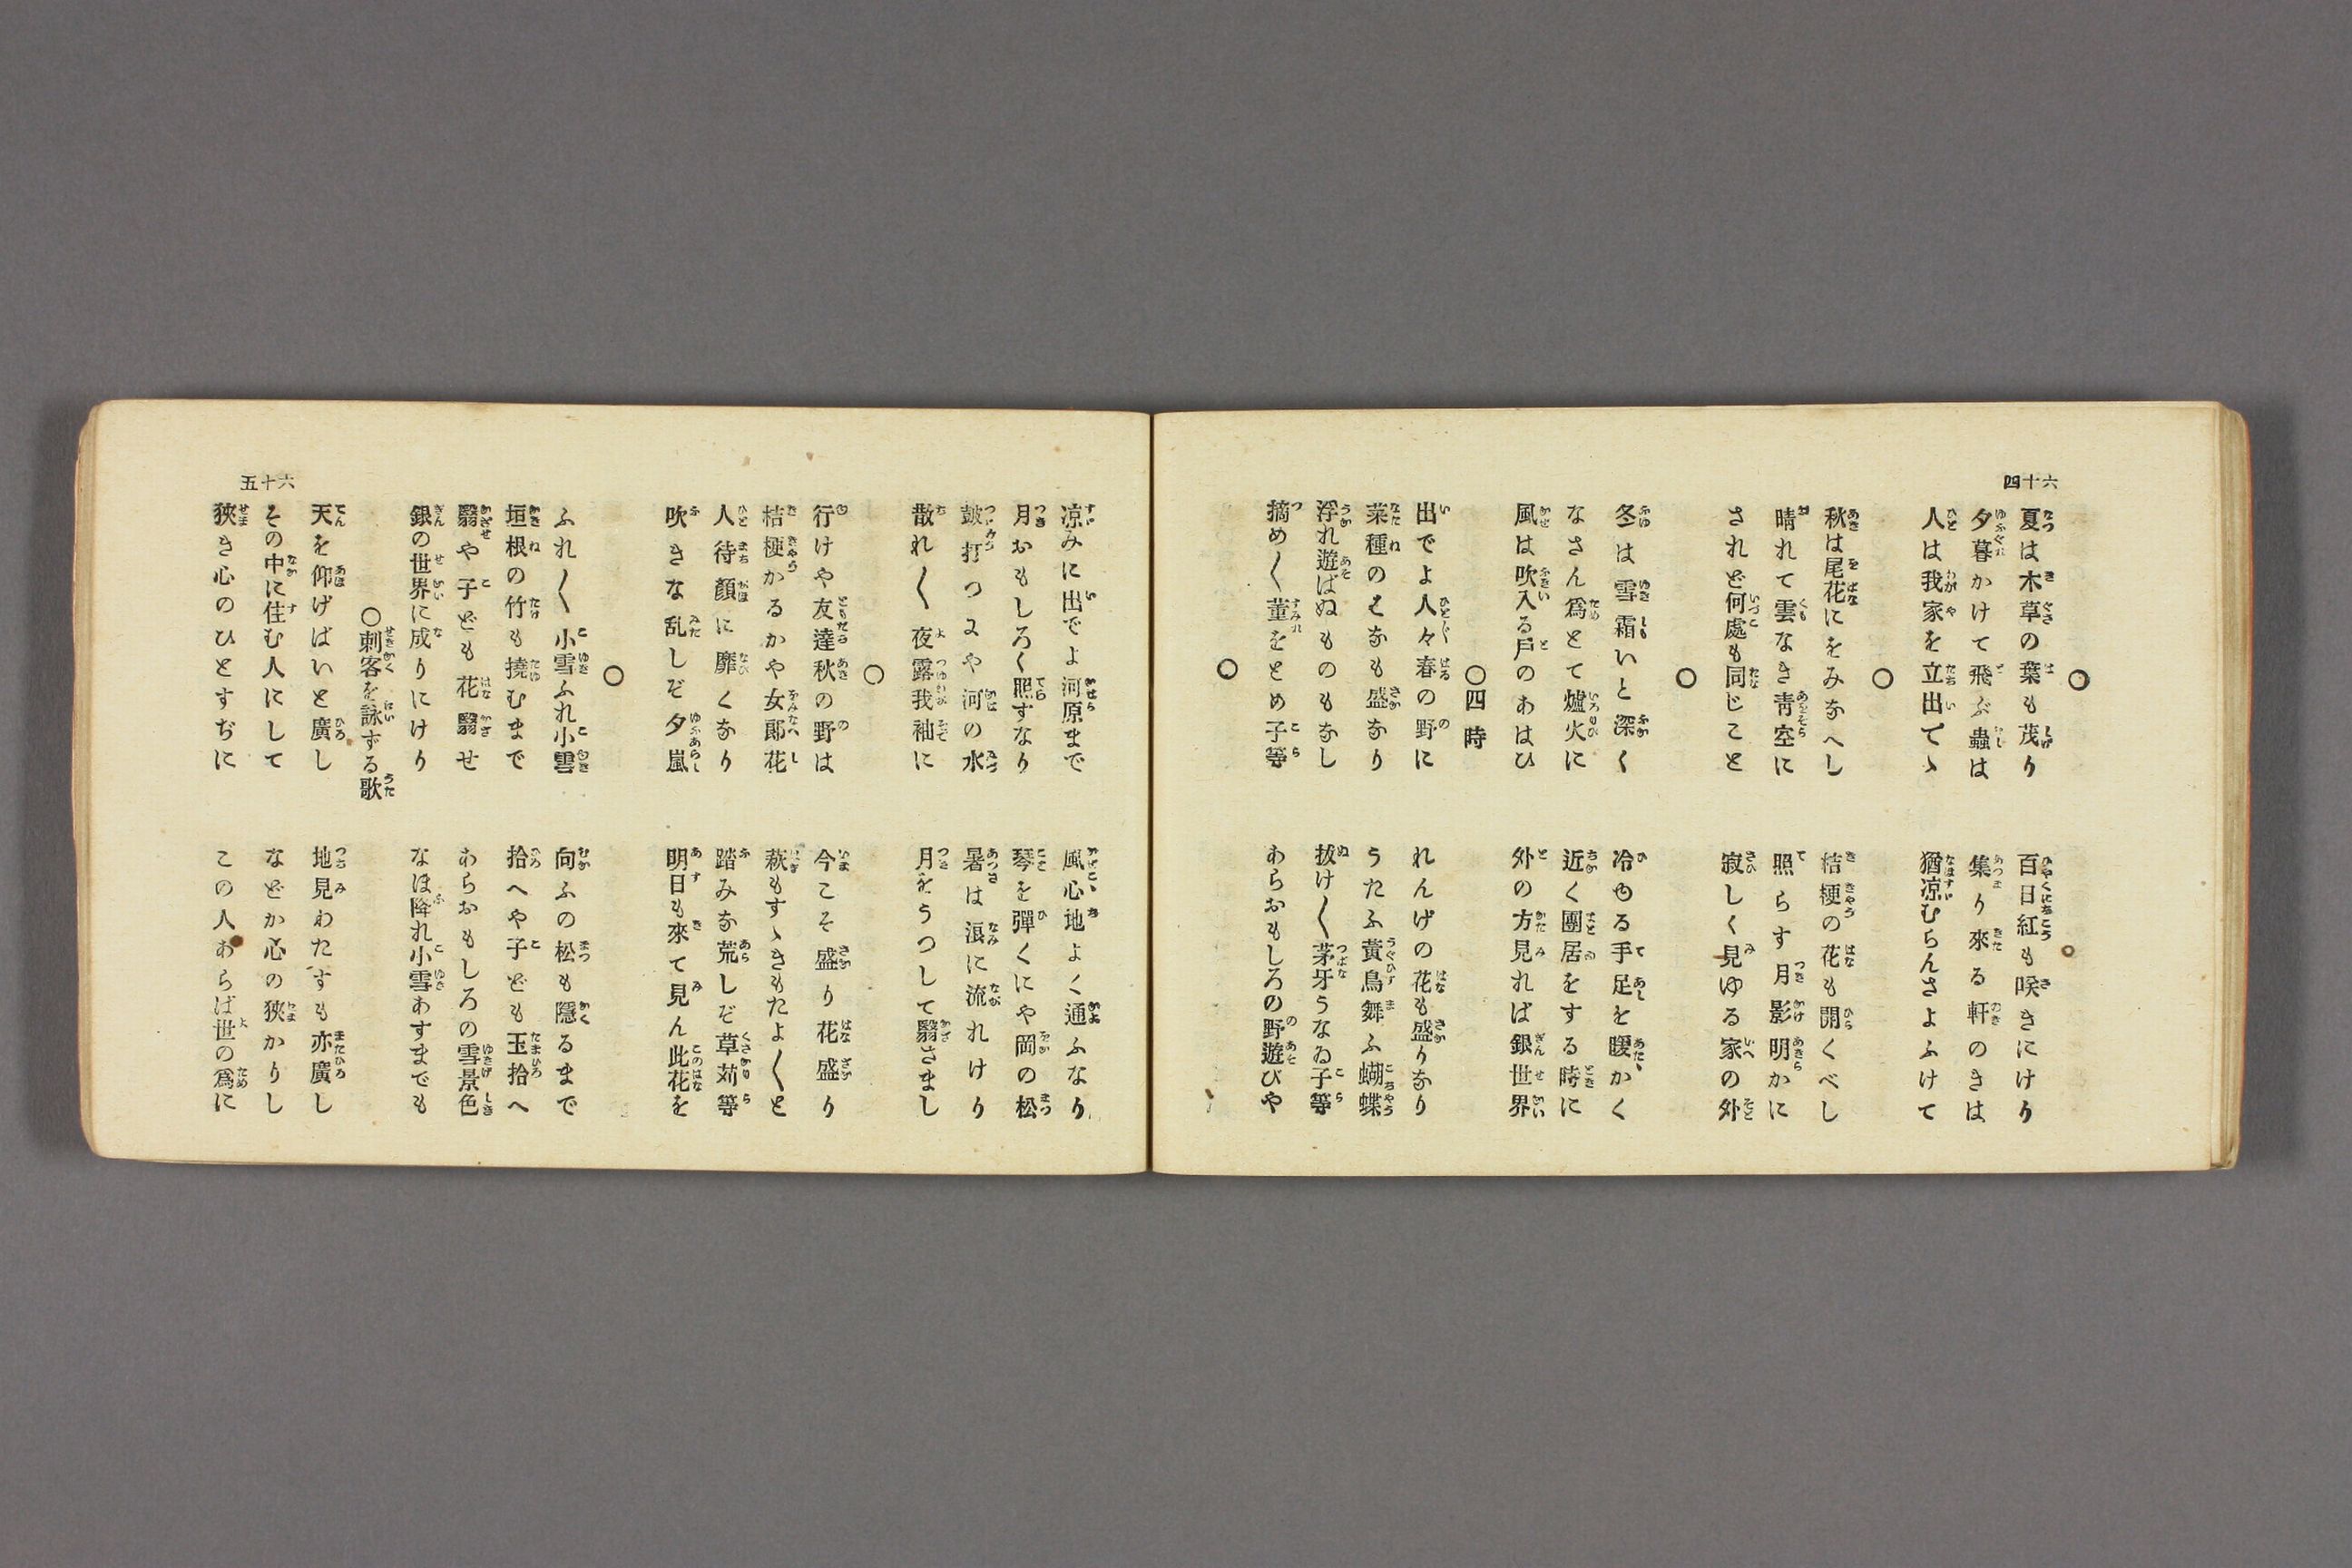 四十六
○
夏は木草の葉も茂り　百日紅も咲きにけり
夕暮かけて飛ぶ蟲は　集り來る軒のきは
人は我家を立出てゝ　猶凉むらんさよふけて
○
秋は尾花にをみなへし　桔梗の花も開くべし
晴れて雲なき靑空に　照らす月影明かに
されど何處も同じこと　寂しく見ゆる家の外
○
冬は雪霜いと深く　冷ゆる手足を暖かく
なさん爲とて爐火に　近く團居をする時に
風は吹入る戶のあはひ　外の方見れば銀世界
○四時
出でよ人々春の野に　れんげの花も盛りなり
菜種のはなも盛なり　うたふ黃鳥舞ふ蝴蝶
浮れ遊ばぬものもなし　拔け〳〵茅牙うなゐ子等
摘め〳〵菫をとめ子等　あらおもしろの野遊びや
○
五十六
凉みに出でよ河原まで　風心地よく通ふなり
月おもしろく照すなり　琴を彈くにや岡の松
皷打つにや河の水　暑さは浪に流れけり
散れ〳〵夜露我袖に　月をうつして翳さまし
○
行けや友達秋の野は　今こそ盛り花盛り
桔梗かるかや女郞花　萩もすゝきもたよ〳〵と
人待顏に靡くなり　踏みな荒しぞ草苅等
吹きな乱しぞ夕嵐　明日も來て見ん此花を
○
ふれ〳〵小雪ふれ小雪　向ふの松も隱るまで
垣根の竹も撓むまで　拾へや子ども玉拾へ
翳せや子ども花翳せ　あらおもしろの雪景色
銀の世界に成りにけり　なほ降れ小雪あすまでも
○刺客を詠ずる歌
天を仰げばいと廣し　地見わたすも亦廣し
その中に住む人にして　などか心の狹かりし
狹き心のひとすぢに　この人あらば世の爲に